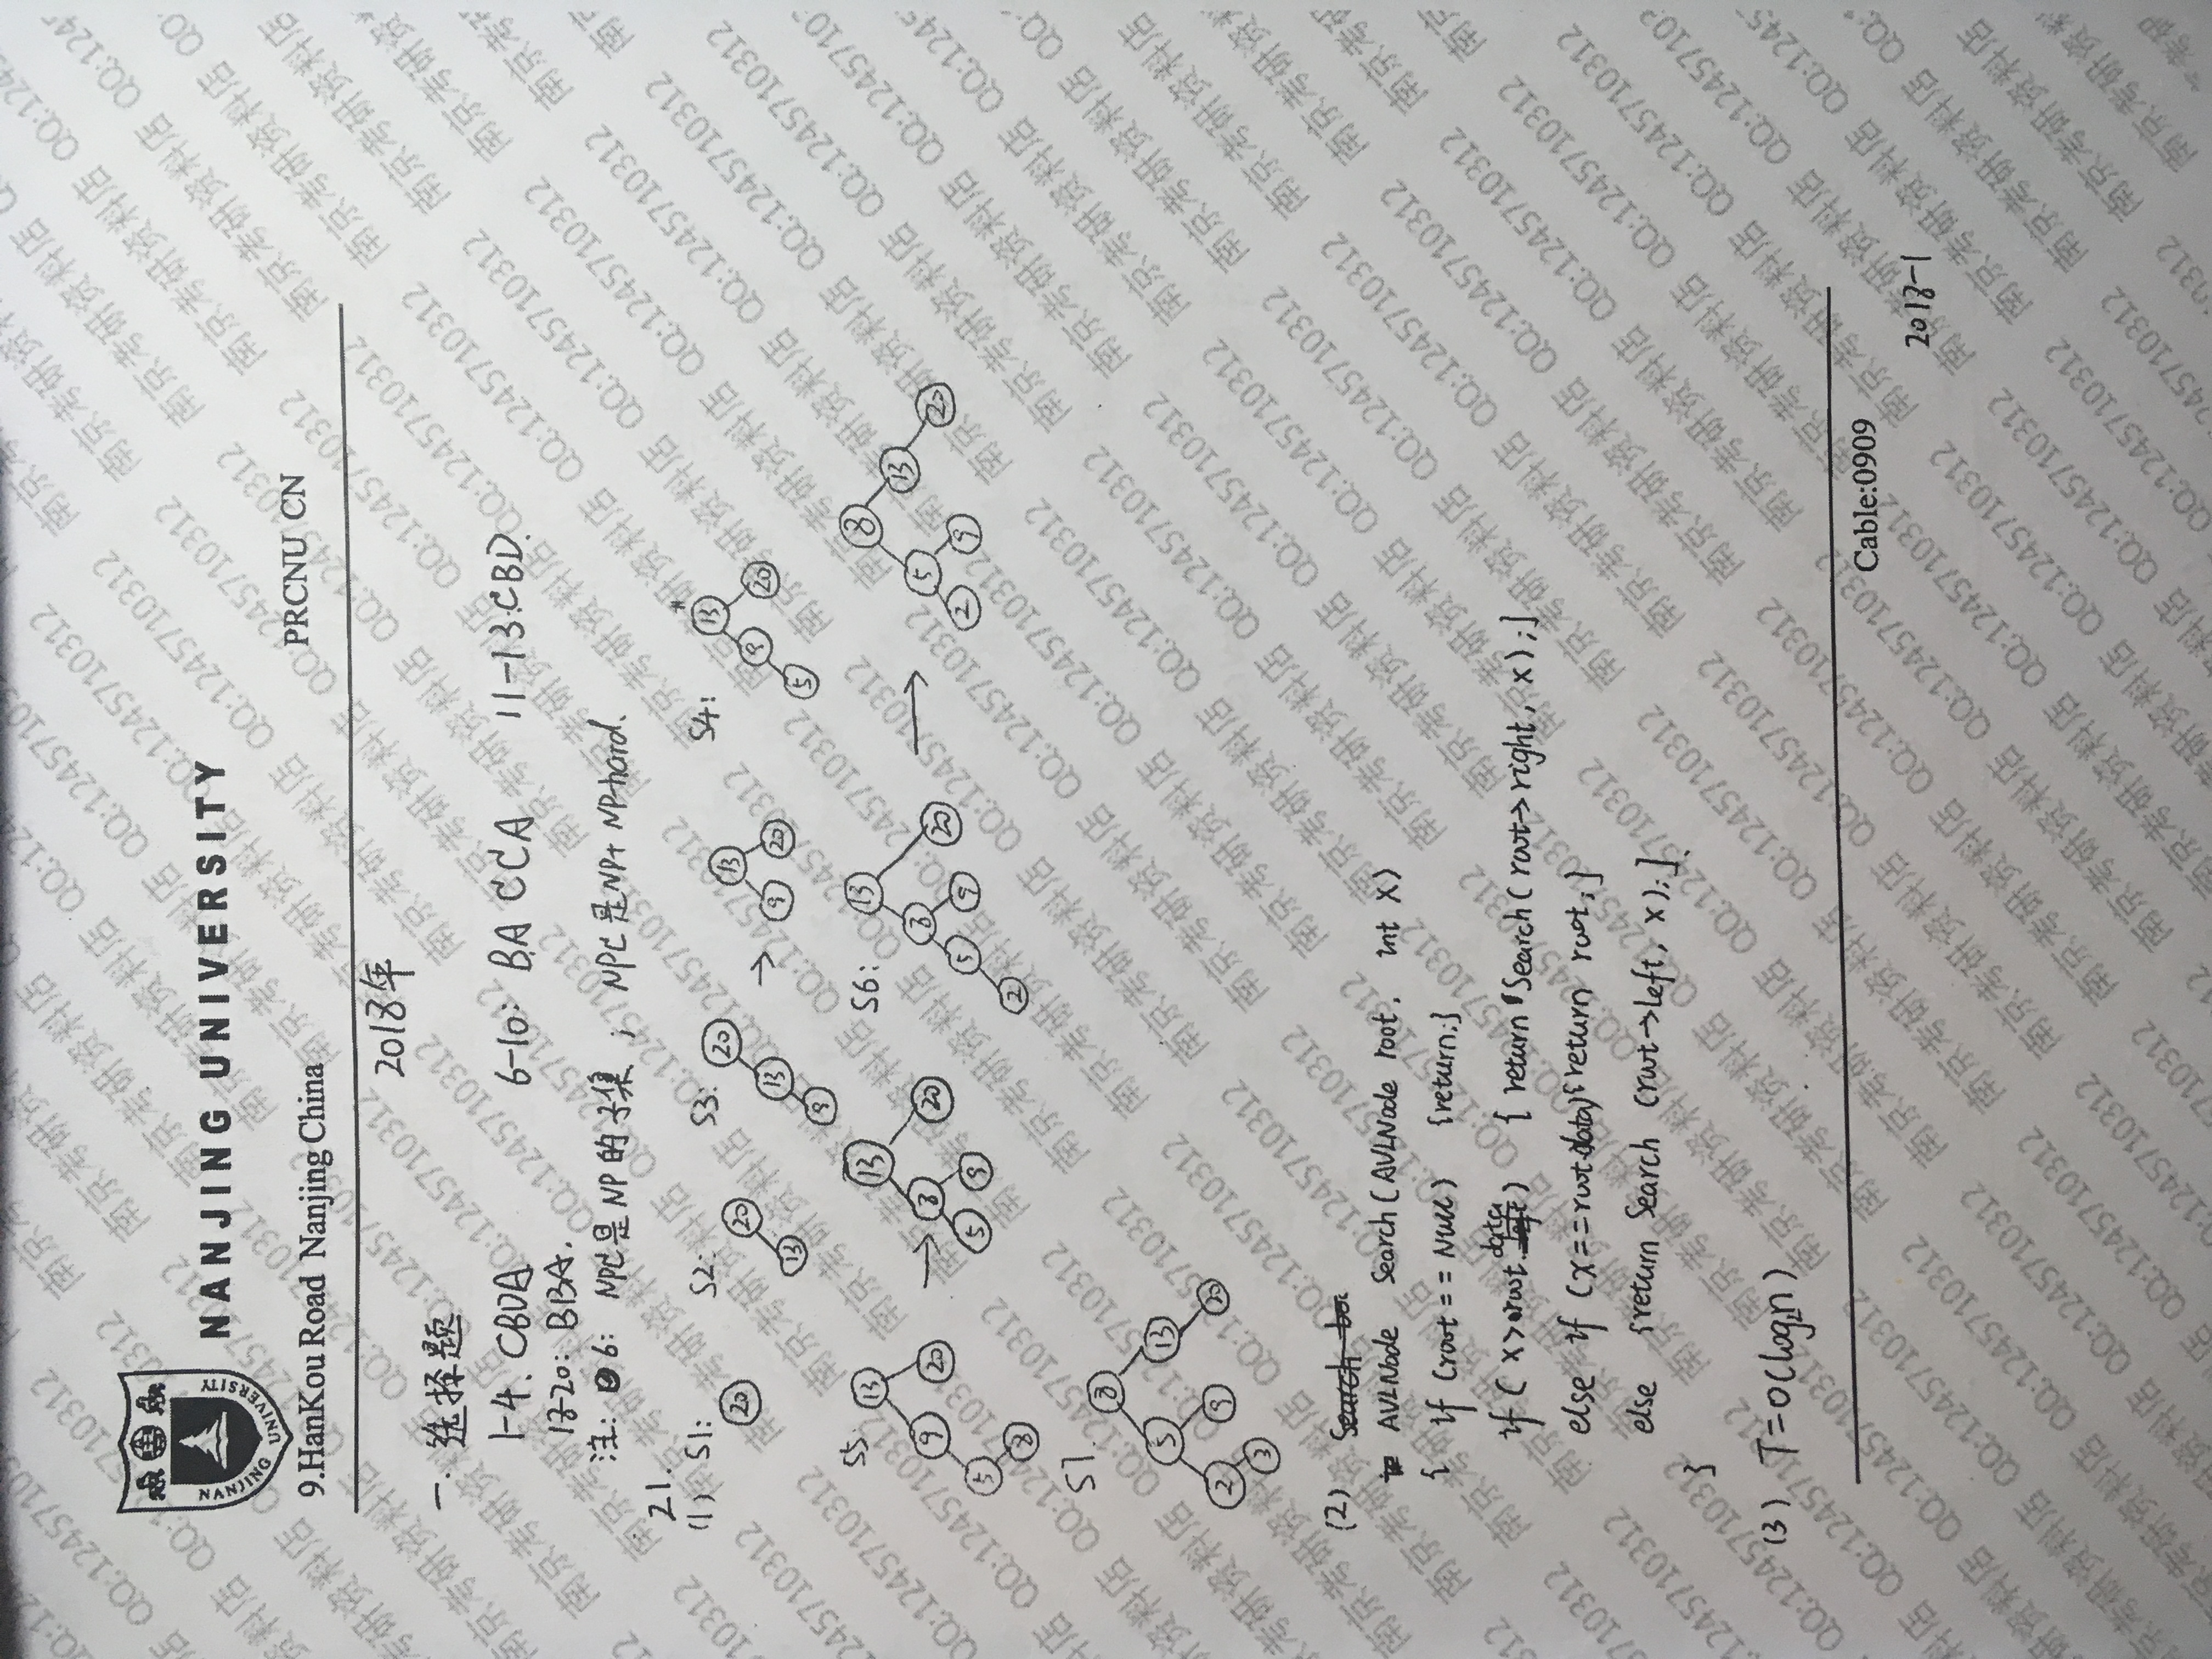 NANJING UNIVERSITY
NANJING UNIVERSITY
9.HanKou Road Nanjing China
PRCNU CN
2018年
一. 选择题
1-4. CBDA 6-10: BACCA 11-13: CBD.
18-20: BBA.
注: 6: NPC是NP的子集; NPC是NP+ NP-hard.
21.
(1) S1: S2: S3: → S4:
20
20 13
20 13 9
13 9 20
13 9 20 5
S5: → S6: →
13 9 20 5 8
13 8 20 5 9
13 8 20 5 9 2
8 5 13 2 9 20
S7.
8
5 13
2 9 20
3
(2) Search
AVLNode Search(AVLNode root, int x)
{ if (root == Null) {return;}
if (x>root.data) { return Search(root→right, x);}
else if (x==root.data){return root;}
else {return Search (root→left, x);}
}
(3) T=O(log₂n)
Cable:0909
2018-1
南京考研资料店 QQ:1245710312